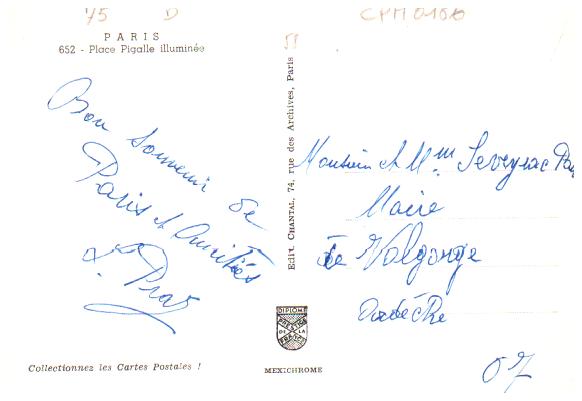 75 D CPM0100
55
PARIS
652 - Place Pigalle illuminée
Bon souvenir de
Paris et Amitiés
Edit. CHANTAL, 74, rue des Archives, Paris
Monsieur et Mme Seveyrac
Maire
de Valgorge
Ardèche
07
DIPLOME
PRESTIGE
DE LA
FRANCE
Collectionnez les Cartes Postales !
MEXICHROME